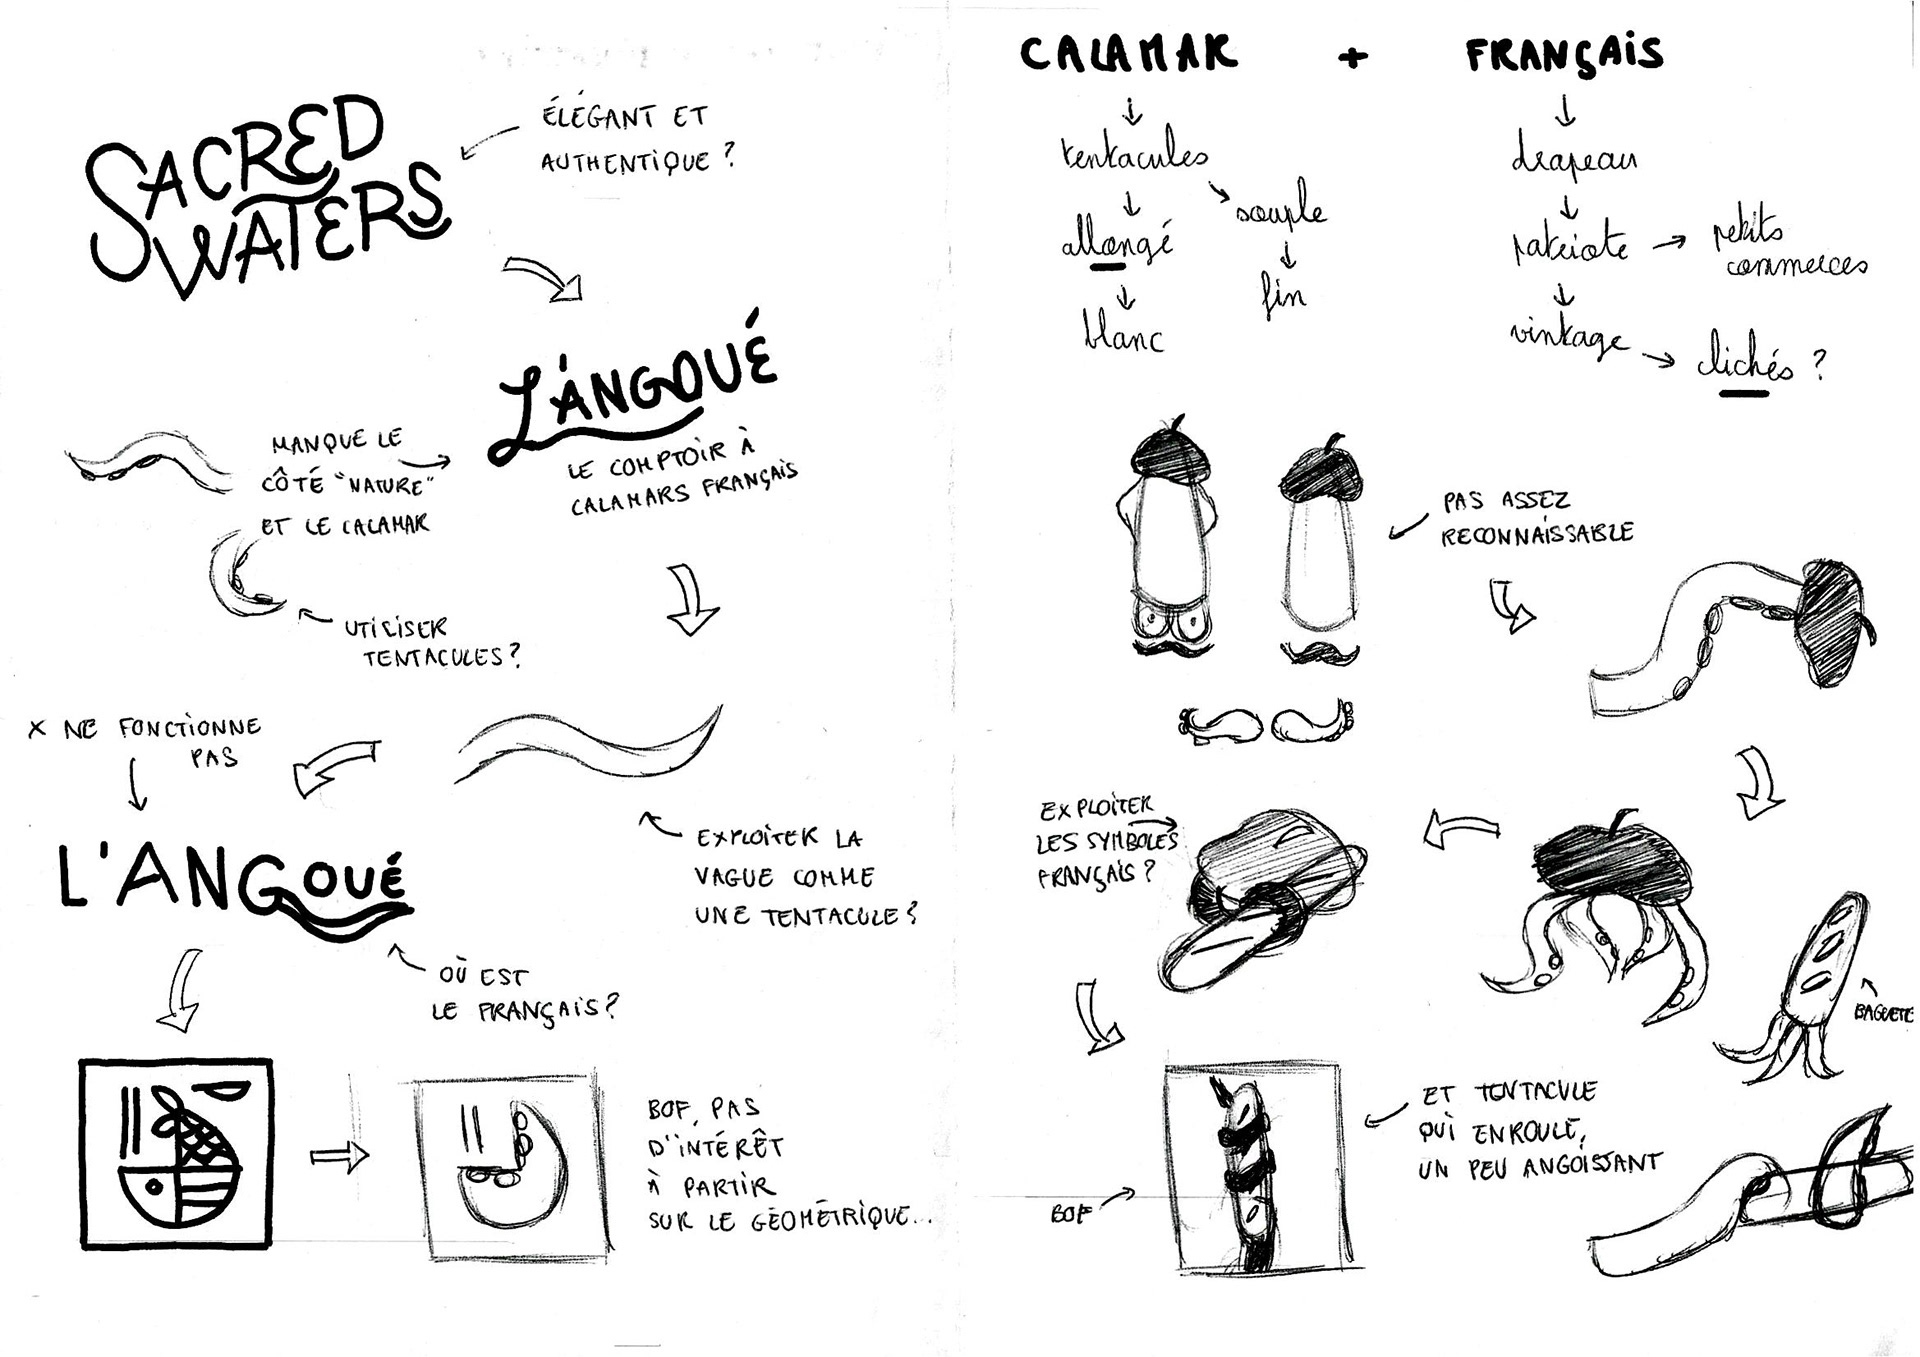 SACRED
WATERS
ÉLÉGANT ET
AUTHENTIQUE ?
L'ANGOUÉ
LE COMPTOIR À
CALAMARS FRANÇAIS
MANQUE LE
CÔTÉ "NATURE"
ET LE CALAMAR
UTILISER
TENTACULES ?
X NE FONCTIONNE
PAS
EXPLOITER LA
VAGUE COMME
UNE TENTACULE ?
L'ANGOUÉ
OÙ EST
LE FRANÇAIS ?
BOF, PAS
D'INTÉRÊT
À PARTIR
SUR LE GÉOMÉTRIQUE...
CALAMAR + FRANÇAIS
tentacules
souple
allongé
fin
blanc
drapeau
patriote
petits
commerces
vintage
clichés ?
PAS ASSEZ
RECONNAISSABLE
EXPLOITER
LES SYMBOLES
FRANÇAIS ?
BAGUETTE
ET TENTACULE
QUI ENROULE,
UN PEU ANGOISSANT
BOF